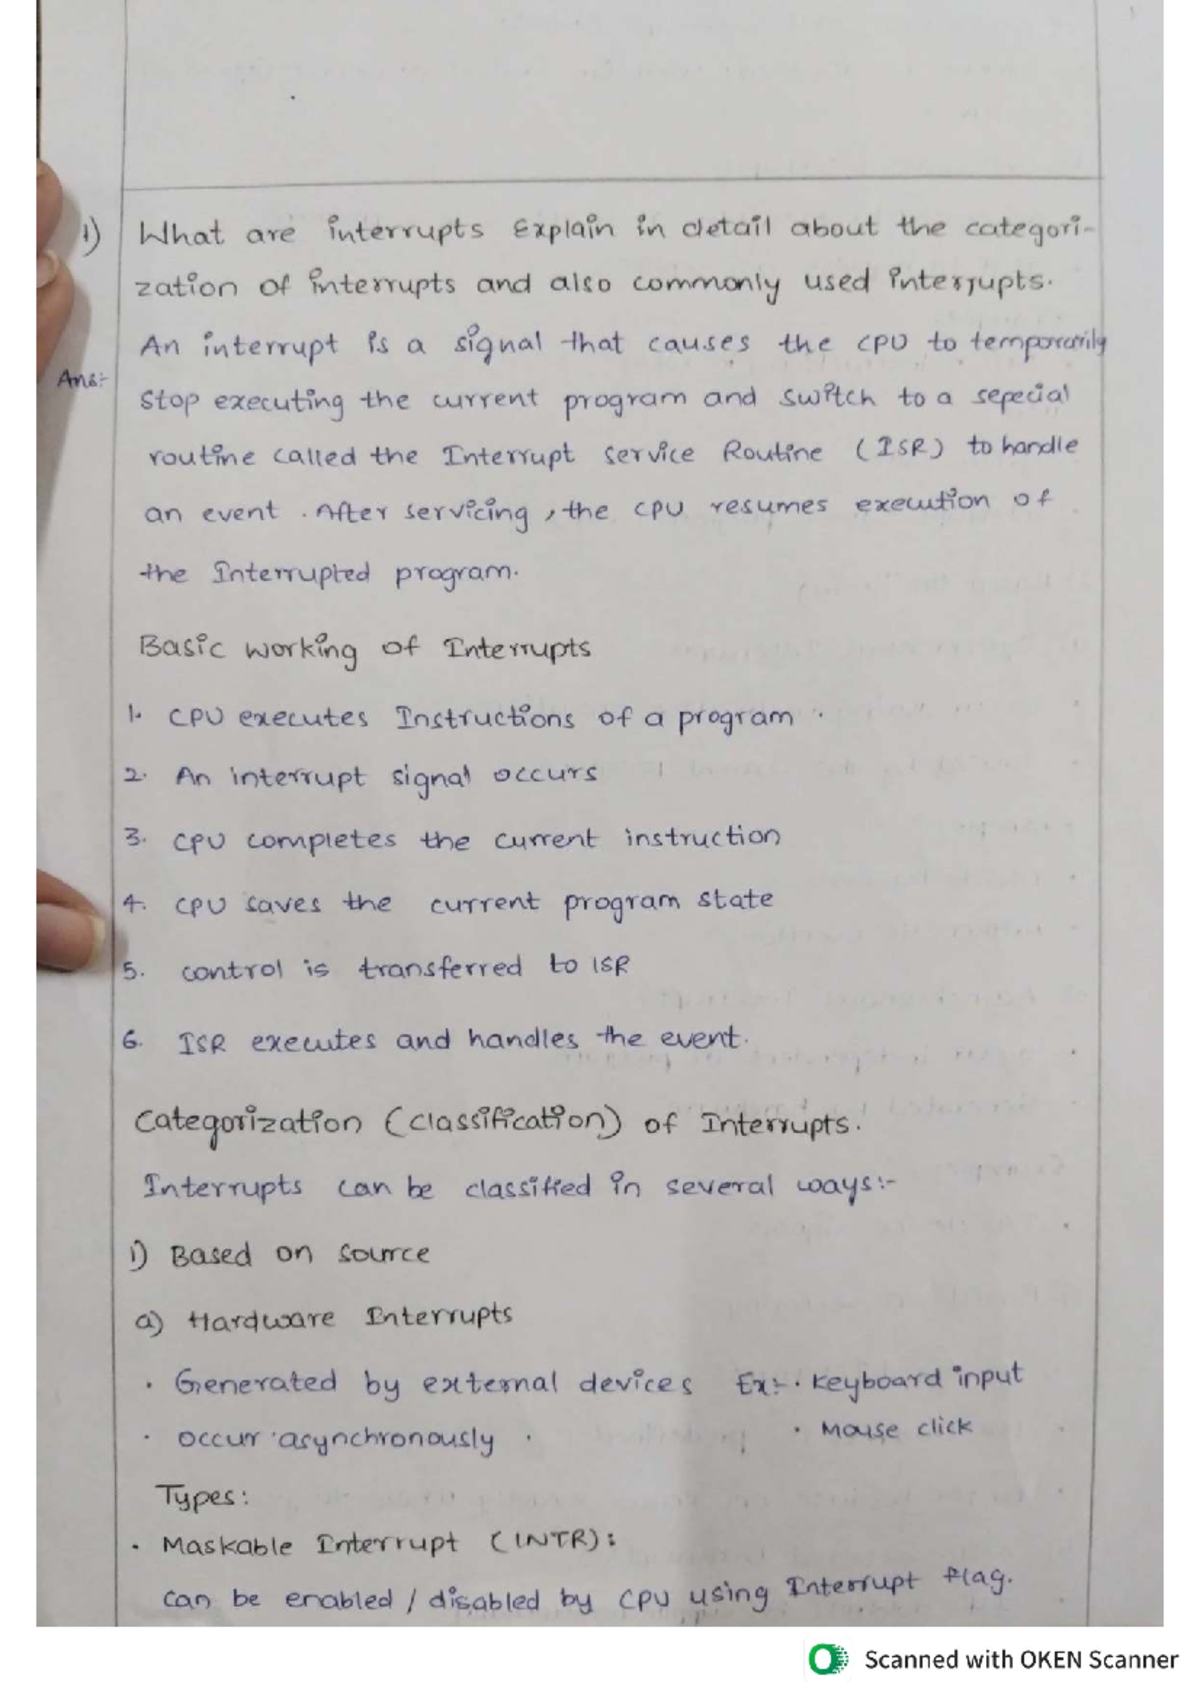 1) What are interrupts Explain in detail about the categori-
zation of interrupts and also commonly used interrupts.
Ans:- An interrupt is a signal that causes the CPU to temporarily
stop executing the current program and switch to a sepecial
routine called the Interrupt service Routine (ISR) to handle
an event. After servicing, the CPU resumes execution of
the Interrupted program.
Basic working of Interrupts
1. CPU executes Instructions of a program.
2. An interrupt signal occurs
3. CPU completes the current instruction
4. CPU saves the current program state
5. control is transferred to ISR
6. ISR executes and handles the event.
Categorization (classification) of Interrupts.
Interrupts can be classified in several ways:-
1) Based on source
a) Hardware Interrupts
· Generated by external devices Ex:- · Keyboard input
· occur asynchronously · · Mouse click
Types:
· Maskable Interrupt (INTR):
can be enabled / disabled by CPU using Interrupt flag.
Scanned with OKEN Scanner